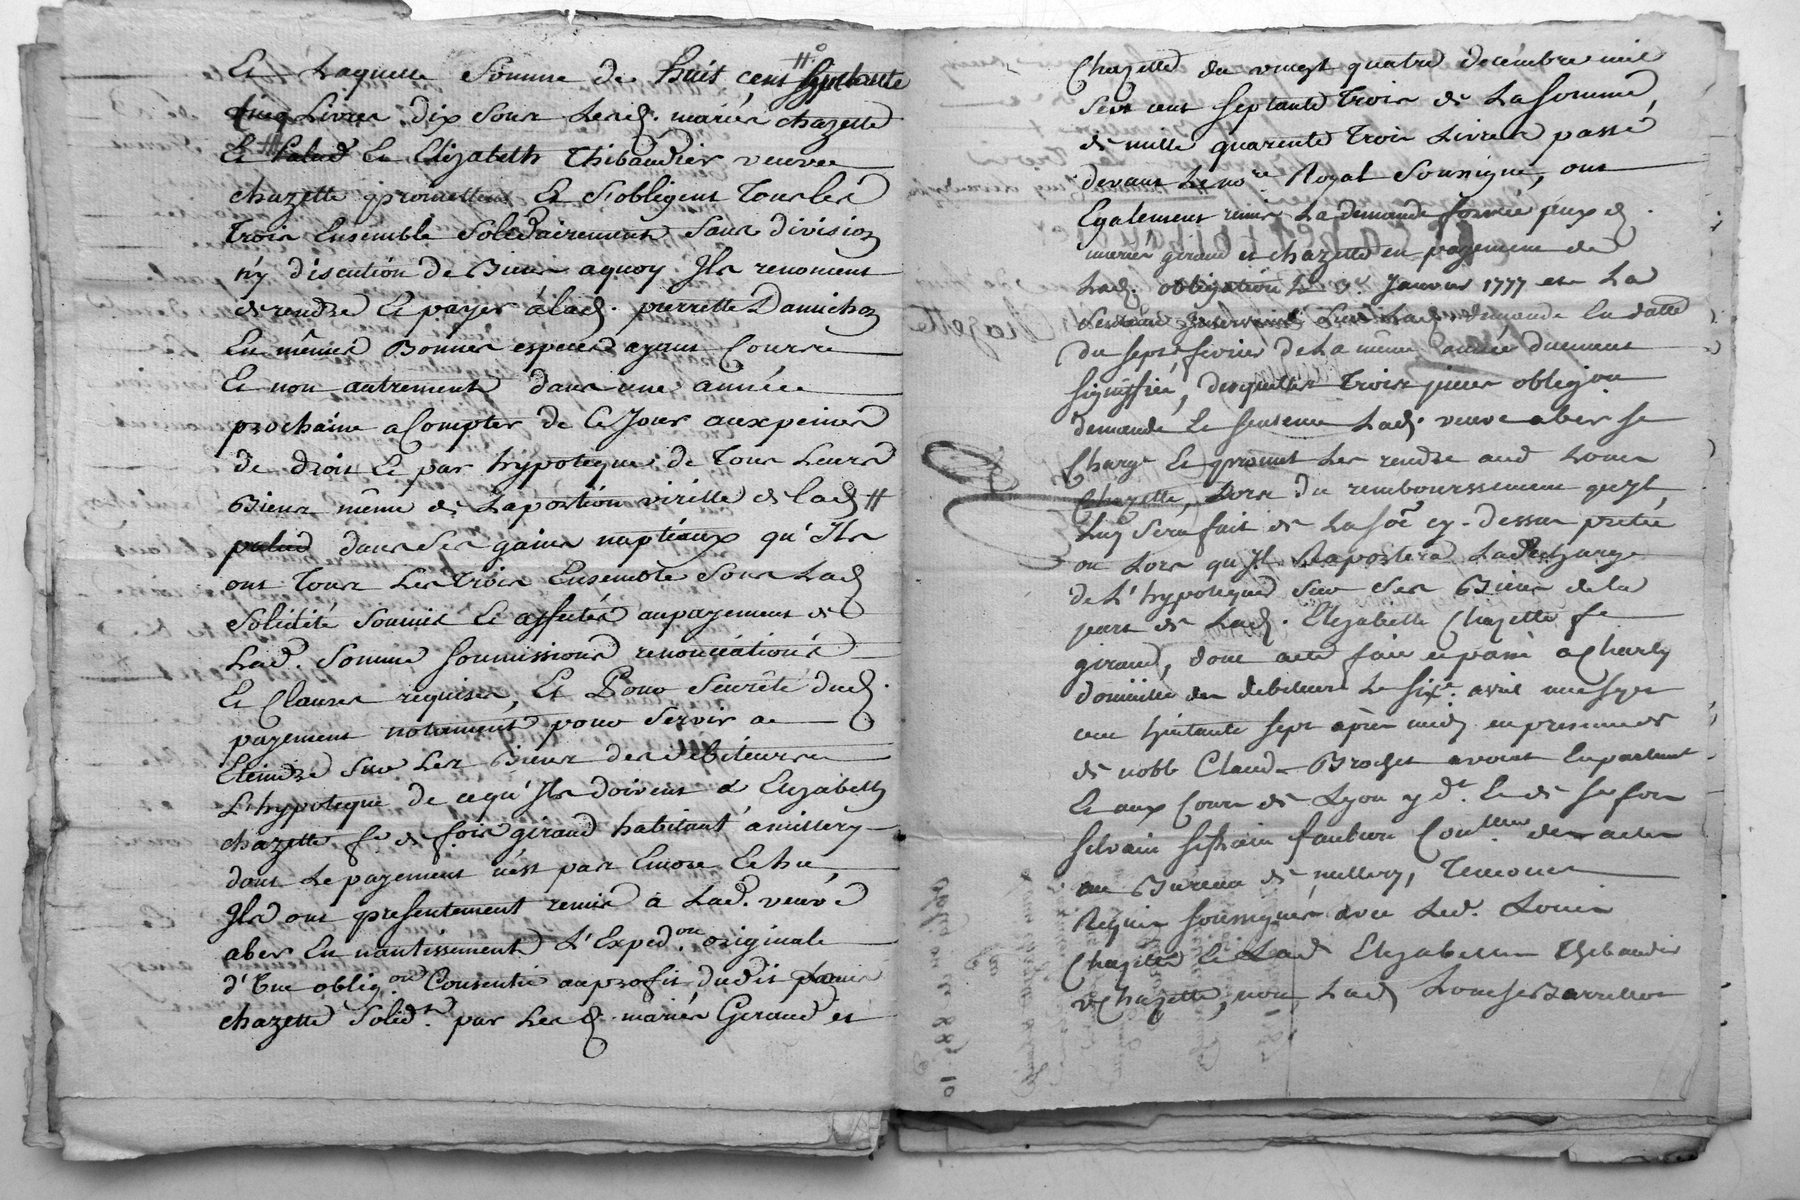 Et Laquelle Somme de huit cent Septante
Cinq Livres dix Sous Lesd. mariés chazette
Et Palud Et Elizabeth Thibaudier veuve
chazette promettent Et S'obligent Tous les
Trois Ensemble Solidairement Sans division
n'y discution de Biens aquoy Ils renoncent
de rendre Et payer à lad. pierrette Damichon
En mêmes Bonnes especes ayant Cours
Et non autrement dans une année
prochaine a Compter de Ce Jour aux peines
de droit Et par hypoteque de Tous Leurs
Biens même de La portion virille de lad. #
palud dans Ses gains nuptiaux qu'Ils
ont Tous Les Trois Ensemble Sous Lad.
Solidité Soumis Et affectés au payement de
Lad. Somme Soumissions renonciations
Et Clauses requises, Et Pour Seureté dud.
payement notamment pour Servir a
Eteindre Sur Les Biens des debiteurs
L'hypoteque de ce qu'Ils doivent a Elizabeth
chazette fe. de fois giraud habitant a millery
dont Le payement n'est pas Encore Echu,
Ils ont presentement remis à Lad. veuve
aber En nantissement L'Exped.on originale
d'Une oblig.on Consentie au profit dudit Louis
chazette Solid.t par Les d. mariés Geraud et
Chazette du vingt quatre decembre mil
Sept cent Septante Trois de La Somme
de mille quarente Trois Livres passé
devant Le no.re Royal Soussigné, ont
Egalement remis La demande formée pux d.
mariés giraud et chazette en payement de
Lad. obligation Le Janvier 1777 et La
Sentence Intervenue Sur Lad. demande En datte
du Sept fevrier de La même année duement
Signiffiée, desquelles Trois pieces oblig.on
demande Et Sentence Lad. veuve aber se
Charge Et promet Les rendre aud Louis
Chazette, Lors du remboursement quy
Luy Sera fait de La So.e cy-dessus pretée
ou Lors qu'Il Raportera La decharge
de L'hypoteque Sur Ses Biens de la
part de Lad. Elizabeth Chazette fe
giraud, dont acte fait et passé a Charly
domicille des debiteurs Le Six.e avril mil Sept
cent huitante Sept après midy en presence de
de noble Claude Brochet avocat En parlement
Et aux Cours de Lyon y d.t Et de
Silvain faubion Con.lleur des actes
au Bureau de millery, Temoins
Requis Soussignés avec Led. Louis
Chazette Et Lad Elizabeth Thibaudier
v.e Chazette, non Lad.